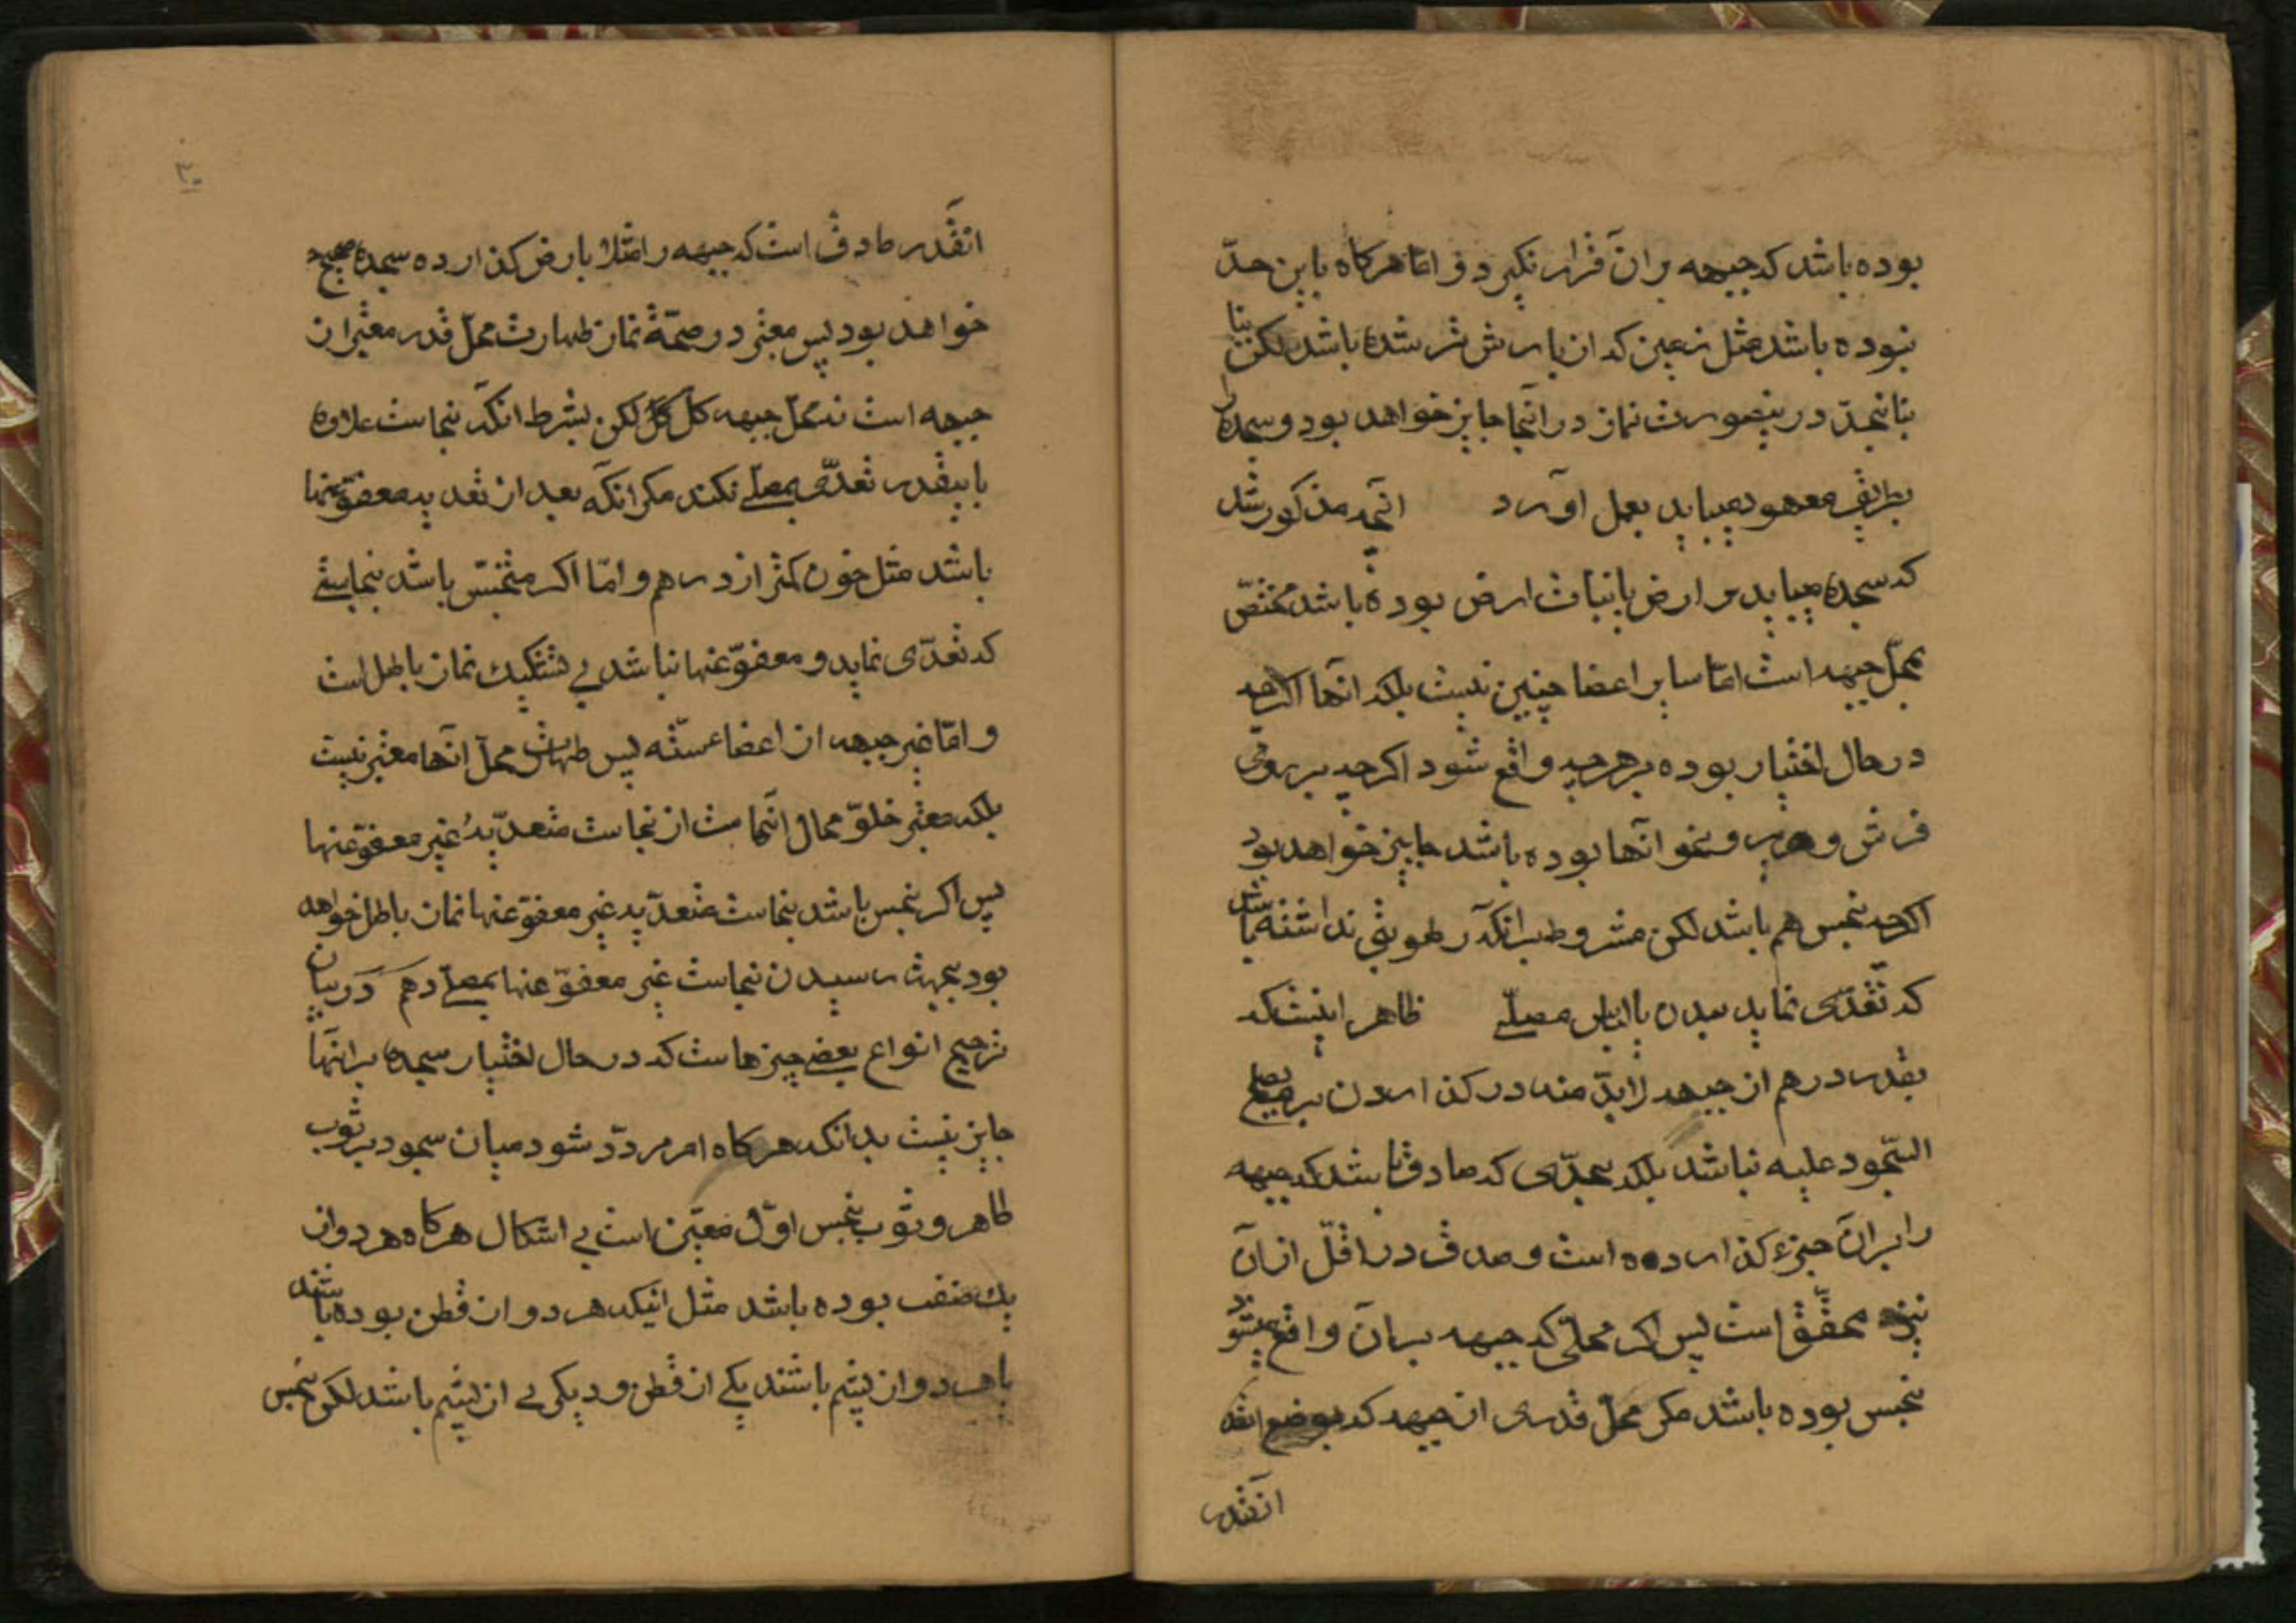 بوده باشد که جبهه بر آن قرار نگیرد و اما هرگاه باین حدّ
نبوده باشد مثل زمین که از بارش تر شده باشد لکن
بآنحدّ در ینصورت نماز در آنجا جایز خواهد بود و سجده را
بطریق معهود میباید بعمل آورد آنچه مذکور شد
که سجده میباید بر ارض یا نبات ارض بوده باشد مختصّ
بمحلّ جبهه است امّا سایر اعضا چنین نیست بلکه آنها اگرچه
در حال اختیار بوده بر هر چه واقع شود اگرچه بر روی
فرش و حریر و نحو آنها بوده باشد جایز خواهد بود
اگرچه نجس هم باشد لکن مشروط بر آنکه رطوبتی نداشته باشد
که تعدّی نماید ببدن یا لباس مصلّے ظاهر اینست که
بقدر درهم از جبهه لابدّ منه در گذاردن بر ما یصحّ
السّجود علیه نباشد بلکه بحدّی که صادق باشد که جبهه
را بر آن چیز گذارده است و صدق در اقلّ از آن
نیز محقّق است پس اگر محلّی که جبهه بر آن واقع میشود
نجس بوده باشد مگر محلّ قدری از جبهه که بوضع
آنقدر
۳۰
آنقدر صادق است که جبهه را مثلا بارض گذارده سجده صحیح
خواهد بود پس معتبر در صحّة نماز طهارت محلّ قدر معتبر از
جبهه است نه محلّ جبهه کلّ لکن بشرط آنکه نجاست علاوه
باینقدر تعدّی بمصلّے نکند مگر آنکه بعد از تعدیه معفوّ عنها
باشد مثل خون کمتر از درهم و امّا اگر متنجّس باشد بنجاستے
که تعدّی نماید و معفوّ عنها نباشد بے تشکیک نماز باطل است
و امّا غیر جبهه از اعضاء ستّه پس طهارت محلّ آنها معتبر نیست
بلکه معتبر خلوّ محال آنهاست از نجاست متعدّیهٔ غیر معفوّ عنها
پس اگر نجس باشد بنجاست متعدّیه غیر معفوّ عنها نماز باطل خواهد
بود بجهت رسیدن نجاست غیر معفوّ عنها بمصلّے دهم در بیان
ترجیح انواع بعضے چیزهاست که در حال اختیار سجده بر آنها
جایز نیست بدانکه هرگاه امر مردّد شود میان سجود بر ثوب
طاهر و ثوب نجس اوّل معیّن است بے اشکال هرگاه هر دو از
یک صنف بوده باشد مثل اینکه هر دو از قطن بوده باشند
یا هر دو از پشم باشند یکے از قطن و دیگری از پشم باشد لکن نجس